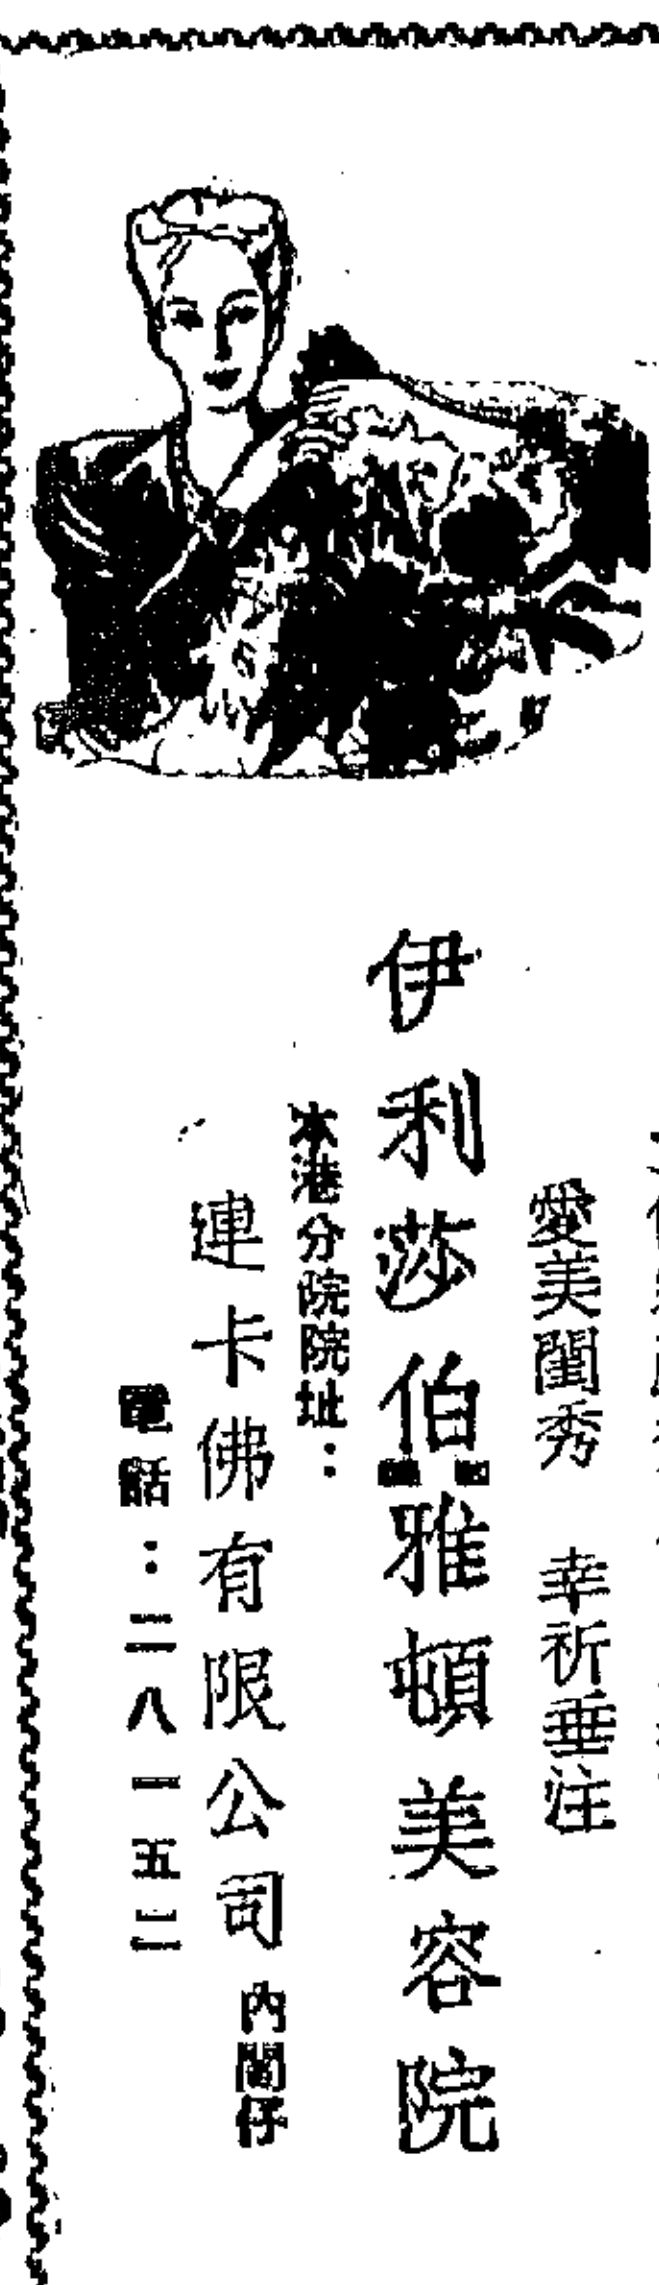 愛美閨秀 幸祈垂注
伊利莎伯雅頓美容院
本港分院院址：
連卡佛有限公司 內閣仔
電話：二八一五二